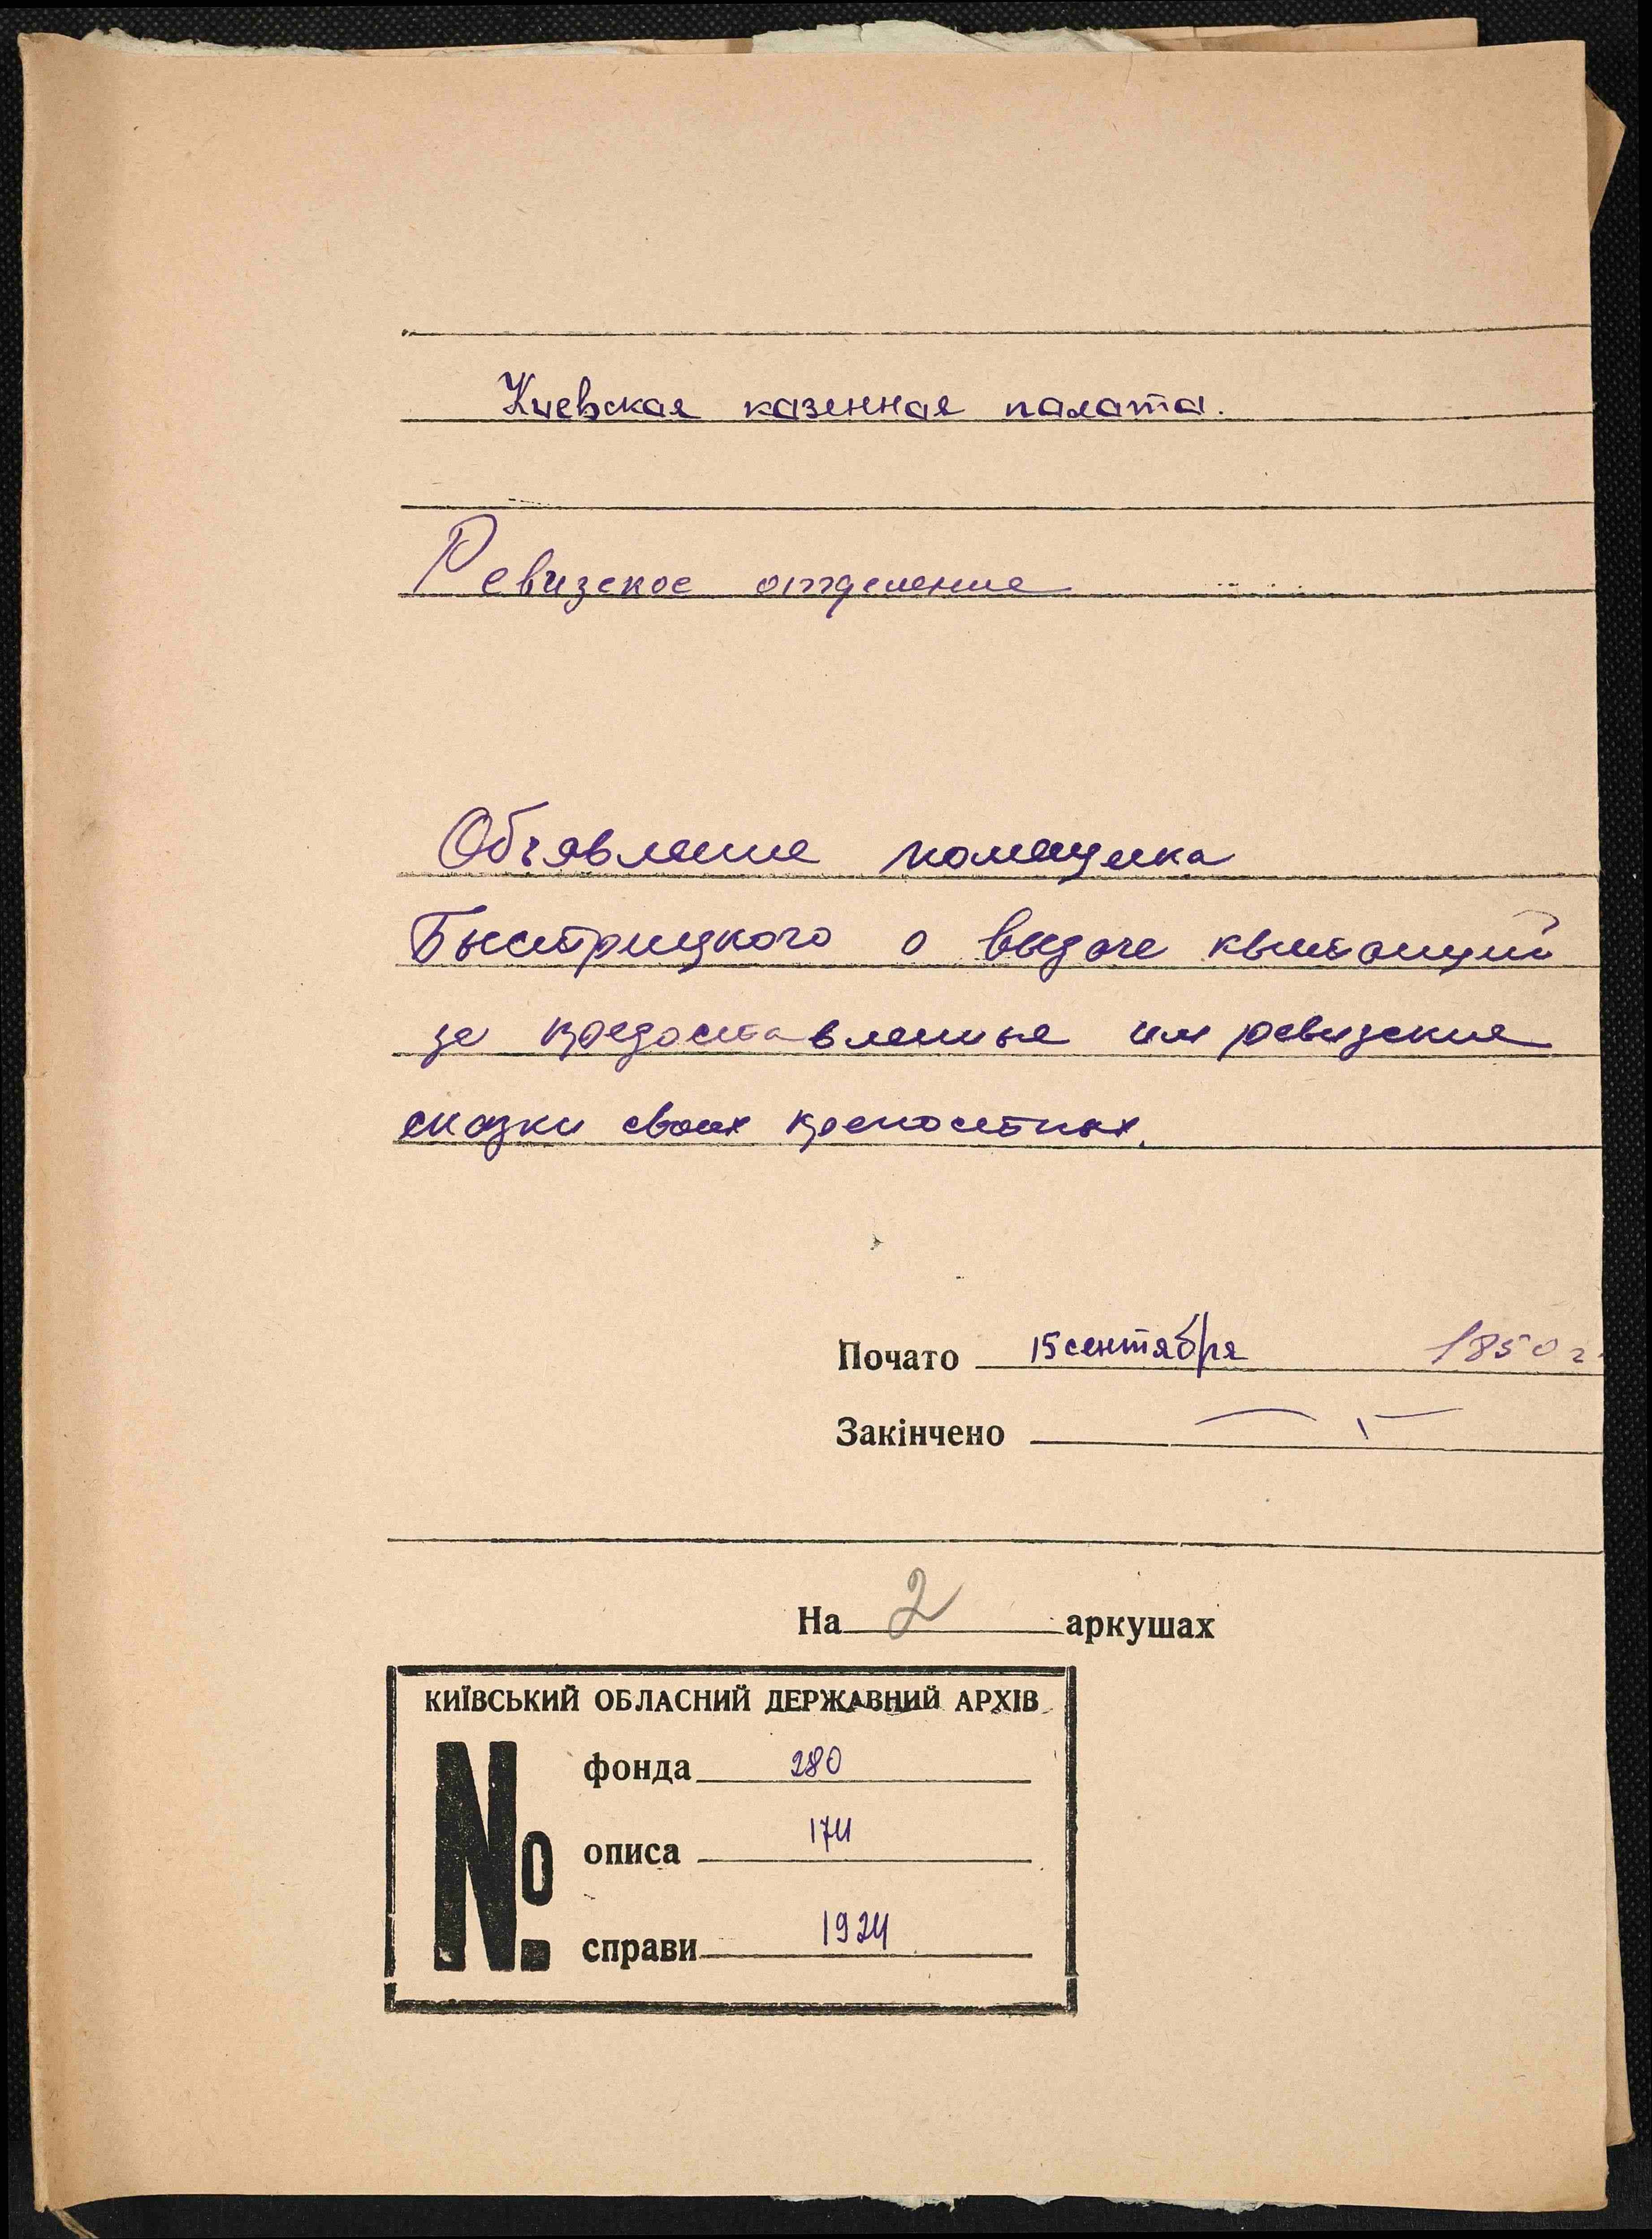 Киевская казенная палата.
Ревизское отделение
Объявление помещика
Быстрицкого о выдаче квитанций
за предоставленные им ревизские
сказки своих крепостных.
Почато 15 сентября 1850 г.
Закінчено — " —
На 2 аркушах
КИЇВСЬКИЙ ОБЛАСНИЙ ДЕРЖАВНИЙ АРХІВ
№
фонда 280
описа 174
справи 1924